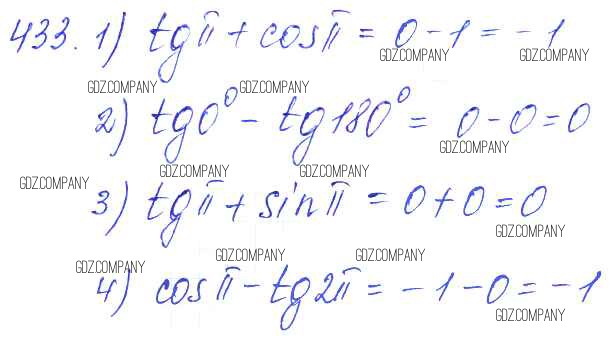 433. 1) tg π + cos π = 0 - 1 = -1
GDZ.COMPANY GDZ.COMPANY
GDZ.COMPANY GDZ.COMPANY
2) tg 0° - tg 180° = 0 - 0 = 0
GDZ.COMPANY
GDZ.COMPANY GDZ.COMPANY GDZ.COMPANY
3) tg π + sin π = 0 + 0 = 0
GDZ.COMPANY
GDZ.COMPANY GDZ.COMPANY GDZ.COMPANY
4) cos π - tg 2π = -1 - 0 = -1
GDZ.COMPANY